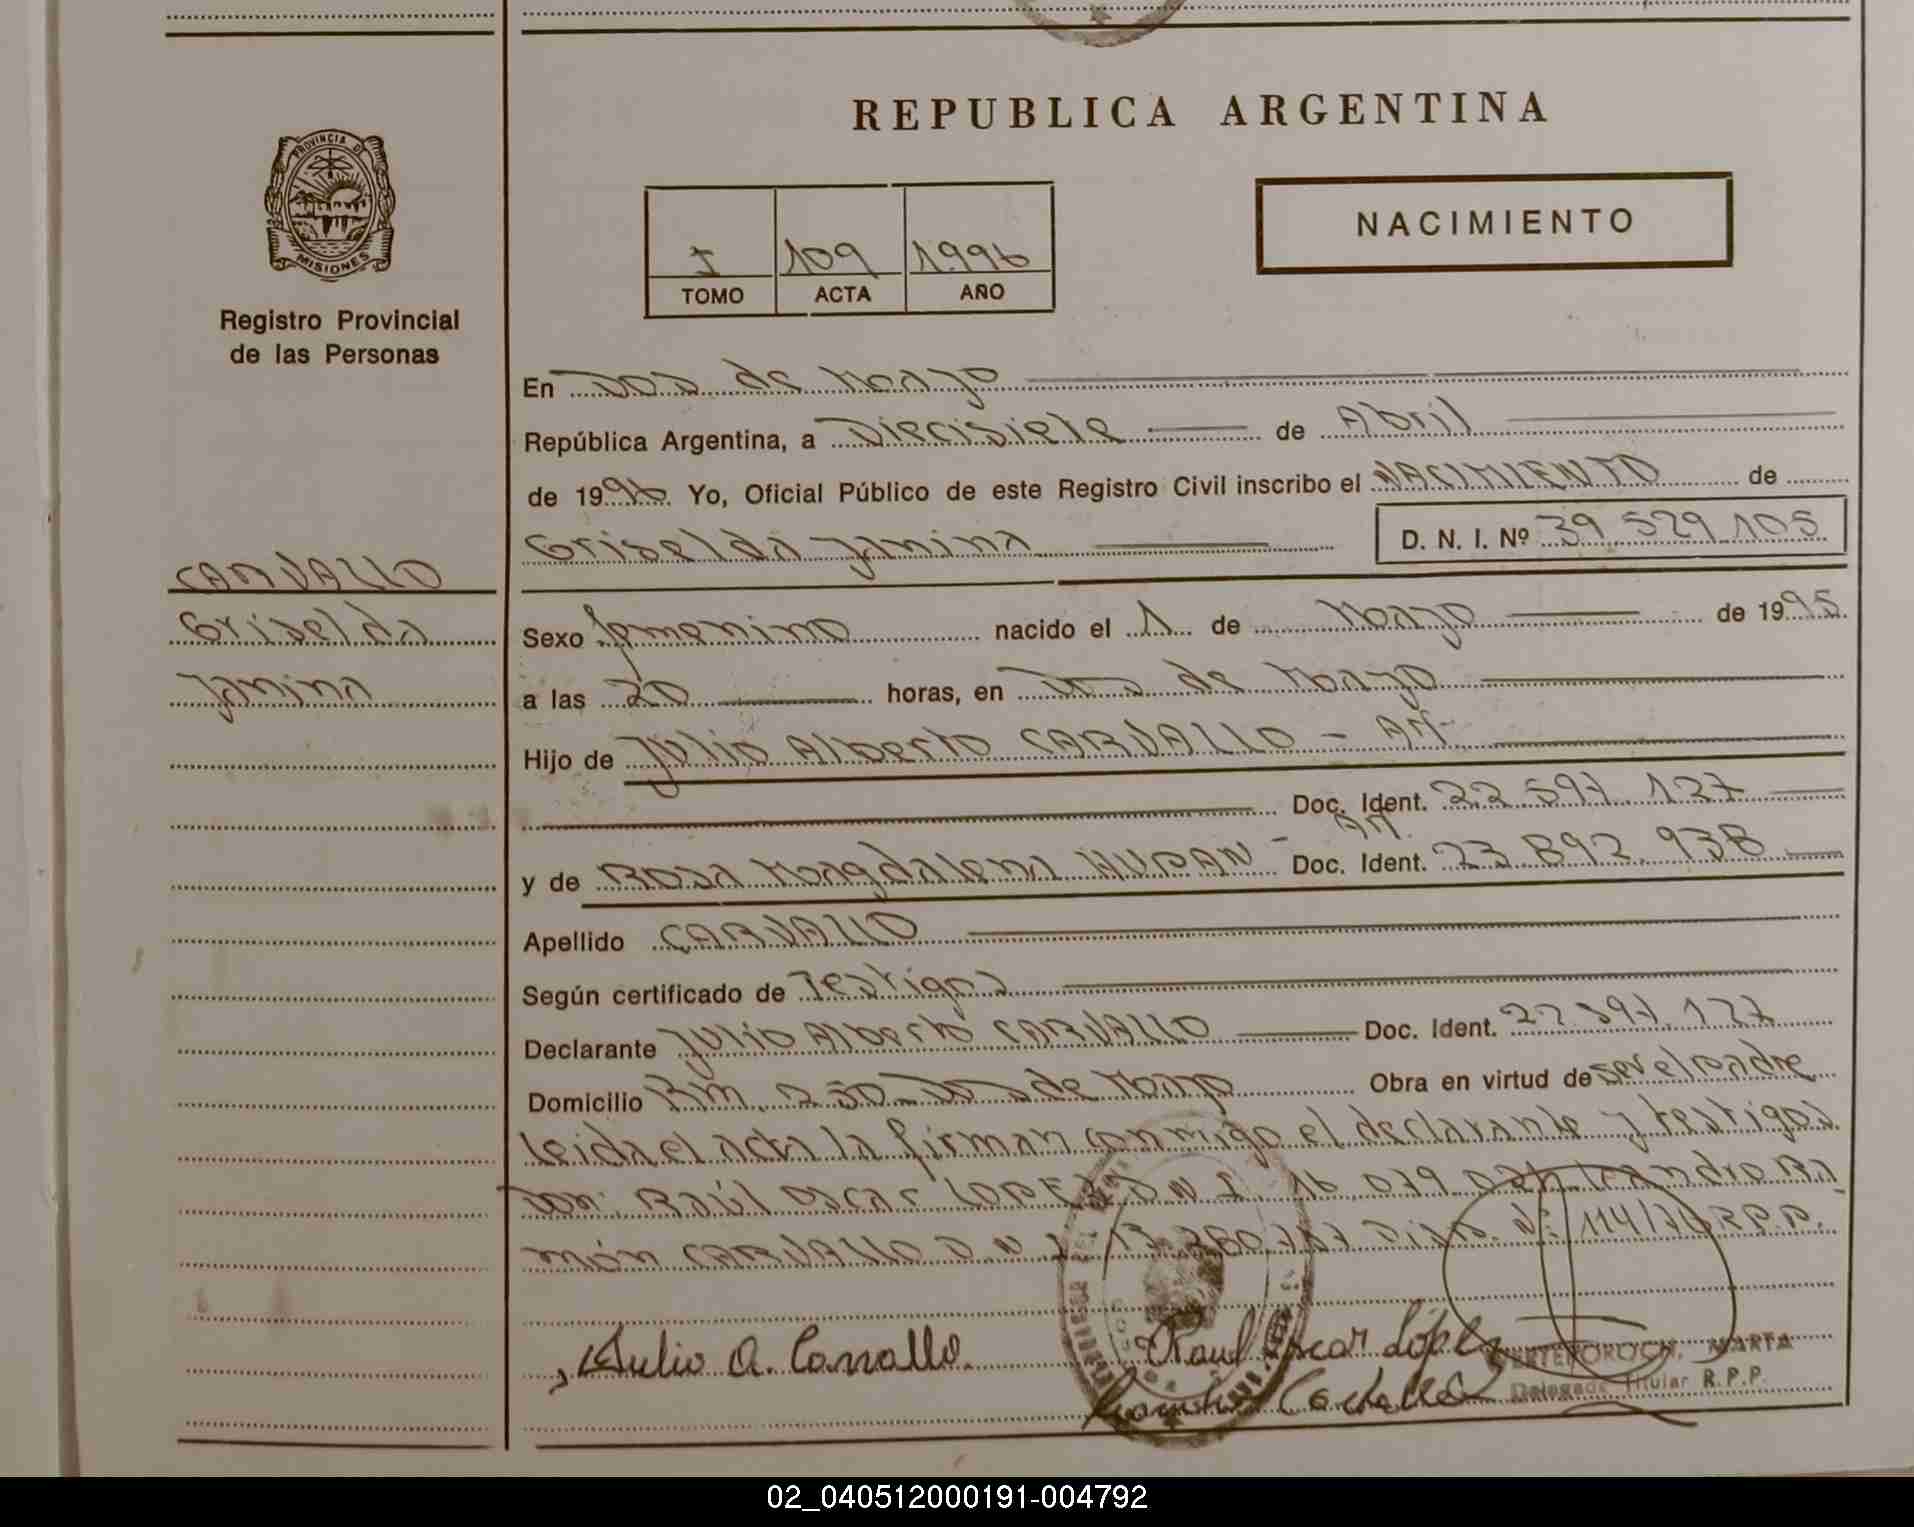 REPUBLICA ARGENTINA
PROVINCIA DE
MISIONES
Registro Provincial
de las Personas
NACIMIENTO
I 109 1996
TOMO ACTA AÑO
En Dos de Mayo
República Argentina, a Diecisiete de Abril
de 1996. Yo, Oficial Público de este Registro Civil inscribo el NACIMIENTO de
Griselda Janina D. N. I. Nº 39 529 105
CARVALLO
Griselda
Janina
Sexo femenino nacido el 1 de Mayo de 1995
a las 20 horas, en Dos de Mayo
Hijo de Julio Alberto CARVALLO - Ar.
Doc. Ident. 22 597 127
y de Rosa Magdalena - Ar. Doc. Ident. 23 892 938
Apellido CARVALLO
Según certificado de Testigos
Declarante Julio Alberto CARVALLO Doc. Ident. 22 597 127
Domicilio Km. 250 Dos de Mayo Obra en virtud de ser el padre
leida el acta la firman conmigo el declarante y testigos
Don: Raúl Oscar LOPEZ D N I 16 079 Leandro Ra
món CARVALLO D N I Nº 114/76 R.P.P.
Julio A. Carvallo. Raul Oscar López
MARTA
Delegada Titular R.P.P.
02_040512000191-004792